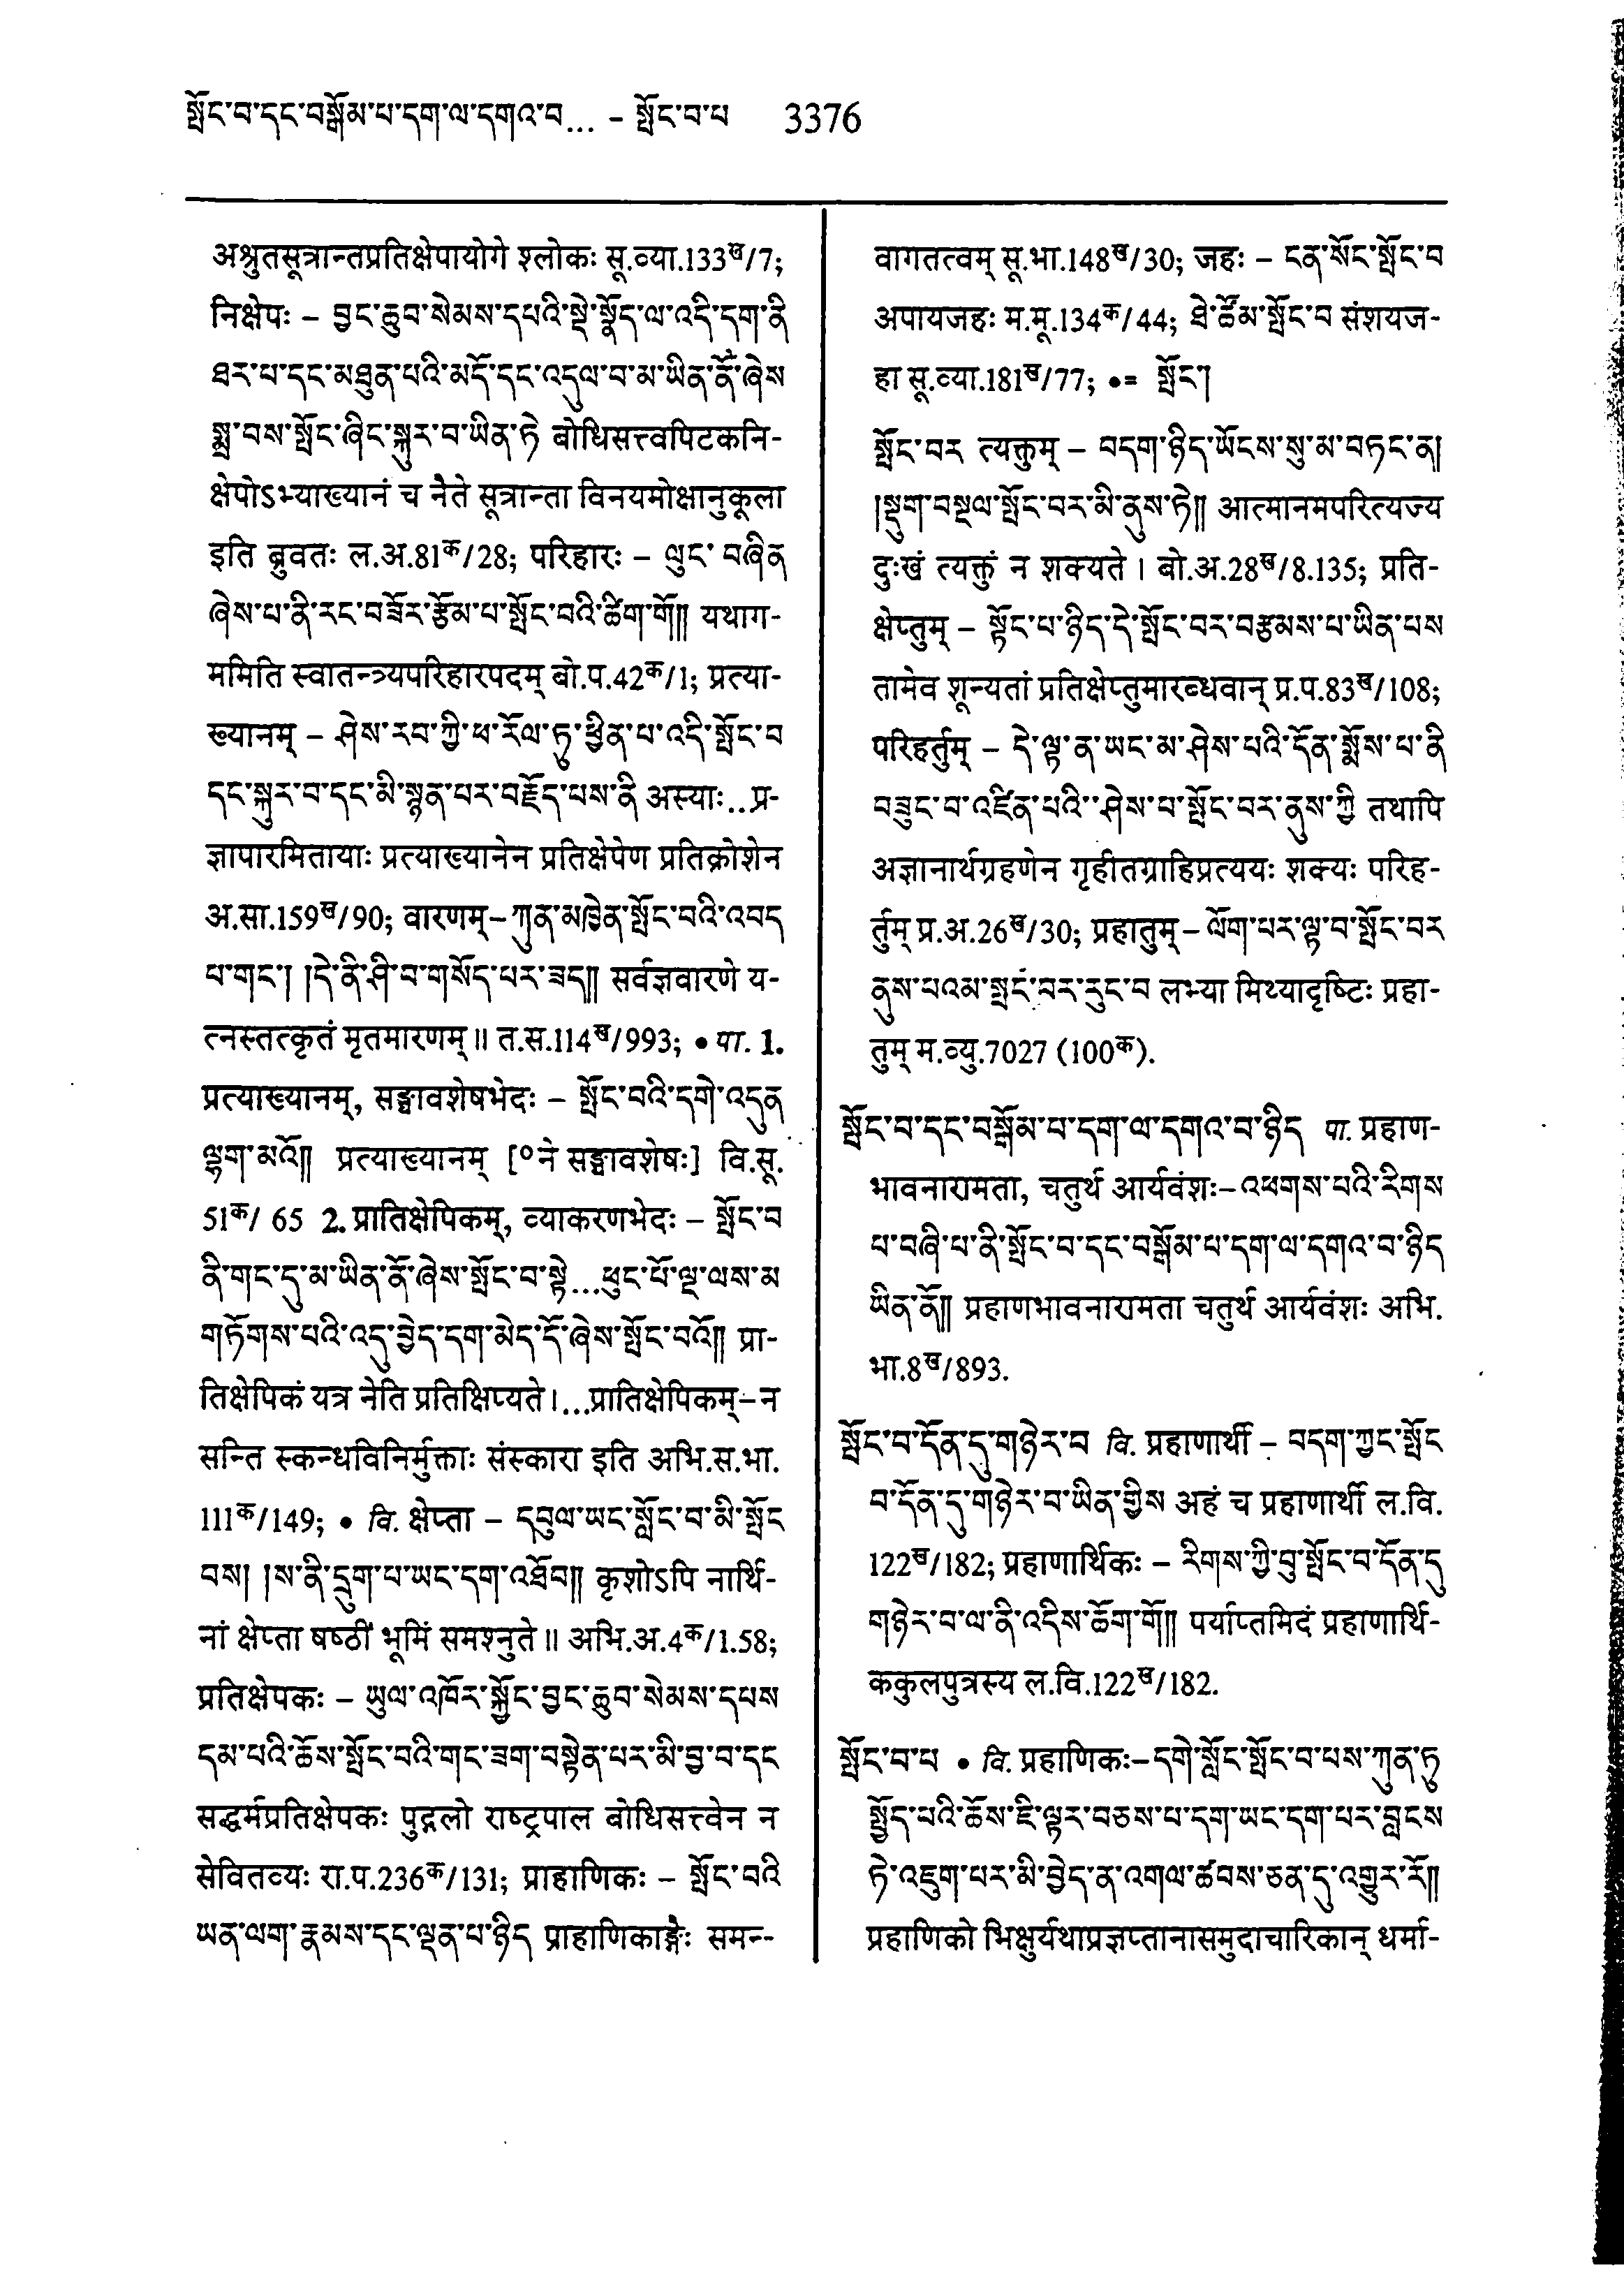 སྤོང་བ་དང་བསྒོམ་པ་དག་ལ་དགའ་བ... – སྤོང་བ་པ 3376
अश्रुतसूत्रान्तप्रतिक्षेपायोगे श्लोकः सू.व्या.133ख/7;
निक्षेपः – བྱང་ཆུབ་སེམས་དཔའི་སྡེ་སྣོད་ལ་འདི་དག་ནི
ཐར་པ་དང་མཐུན་པའི་མདོ་དང་འདུལ་བ་མ་ཡིན་ནོ་ཞེས
སྨྲ་བས་སྤོང་ཞིང་སྐུར་བ་ཡིན་ཏེ बोधिसत्त्वपिटकनि-
क्षेपोऽभ्याख्यानं च नैते सूत्रान्ता विनयमोक्षानुकूला
इति ब्रुवतः ल.अ.81क/28; परिहारः – ལུང་ བཞིན
ཞེས་པ་ནི་རང་བཟོར་རྩོམ་པ་སྤོང་བའི་ཚིག་གོ།། यथाग-
ममिति स्वातन्त्र्यपरिहारपदम् बो.प.42क/1; प्रत्या-
ख्यानम् – ཤེས་རབ་ཀྱི་ཕ་རོལ་ཏུ་ཕྱིན་པ་འདི་སྤོང་བ
དང་སྐུར་བ་དང་མི་སྙན་པར་བརྗོད་པས་ནི अस्याः..प्र-
ज्ञापारमितायाः प्रत्याख्यानेन प्रतिक्षेपेण प्रतिक्रोशेन
अ.सा.159ख/90; वारणम्– ཀུན་མཁྱེན་སྤོང་བའི་འབད
པ་གང་། །དེ་ནི་ཤི་བ་གསོད་པར་ཟད།། सर्वज्ञवारणे य-
त्नस्तत्कृतं मृतमारणम् ॥ त.स.114ख/993; • पा. 1.
प्रत्याख्यानम्, सङ्घावशेषभेदः – སྤོང་བའི་དགེ་འདུན
ལྷག་མའོ།། प्रत्याख्यानम् [°ने सङ्घावशेषः] वि.सू.
51क/ 65 2. प्रातिक्षेपिकम्, व्याकरणभेदः – སྤོང་བ
ནི་གང་དུ་མ་ཡིན་ནོ་ཞེས་སྤོང་བ་སྟེ...ཕུང་པོ་ལྔ་ལས་མ
གཏོགས་པའི་འདུ་བྱེད་དག་མེད་དོ་ཞེས་སྤོང་བའོ།། प्रा-
तिक्षेपिकं यत्र नेति प्रतिक्षिप्यते।...प्रातिक्षेपिकम्– न
सन्ति स्कन्धविनिर्मुक्ताः संस्कारा इति अभि.स.भा.
111क/149; • वि. क्षेप्ता – དབུལ་ཡང་སློང་བ་མི་སྤོང
བས། །ས་ནི་དྲུག་པ་ཡང་དག་འཐོབ།། कृशोऽपि नार्थि-
नां क्षेप्ता षष्ठीं भूमिं समश्नुते ॥ अभि.अ.4क/1.58;
प्रतिक्षेपकः – ཡུལ་འཁོར་སྐྱོང་བྱང་ཆུབ་སེམས་དཔས
དམ་པའི་ཆོས་སྤོང་བའི་གང་ཟག་བསྟེན་པར་མི་བྱ་བ་དང
सद्धर्मप्रतिक्षेपकः पुद्गलो राष्ट्रपाल बोधिसत्त्वेन न
सेवितव्यः रा.प.236क/131; प्राहाणिकः – སྤོང་བའི
ཡན་ལག་རྣམས་དང་ལྡན་པ་ཉིད प्राहाणिकाङ्गैः समन्-
वागतत्वम् सू.भा.148ख/30; जहः – ངན་སོང་སྤོང་བ
अपायजहः म.मू.134क/44; ཐེ་ཚོམ་སྤོང་བ संशयज-
हा सू.व्या.181ख/77; •= སྤོང་།
སྤོང་བར त्यक्तुम् – བདག་ཉིད་ཡོངས་སུ་མ་བཏང་ན།
།སྡུག་བསྔལ་སྤོང་བར་མི་ནུས་ཏེ།། आत्मानमपरित्यज्य
दुःखं त्यक्तुं न शक्यते । बो.अ.28ख/8.135; प्रति-
क्षेप्तुम् – སྟོང་པ་ཉིད་དེ་སྤོང་བར་བརྩམས་པ་ཡིན་པས
तामेव शून्यतां प्रतिक्षेप्तुमारब्धवान् प्र.प.83ख/108;
परिहर्तुम् – དེ་ལྟ་ན་ཡང་མ་ཤེས་པའི་དོན་སྨོས་པ་ནི
བཟུང་བ་འཛིན་པའི་་ཤེས་པ་སྤོང་བར་ནུས་ཀྱི तथापि
अज्ञानार्थग्रहणेन गृहीतग्राहिप्रत्ययः शक्यः परिह-
र्तुम् प्र.अ.26ख/30; प्रहातुम् – ལོག་པར་ལྟ་བ་སྤོང་བར
ནུས་པའམ་སྤང་བར་རུང་བ लभ्या मिथ्यादृष्टिः प्रहा-
तुम् म.व्यु.7027 (100क).
སྤོང་བ་དང་བསྒོམ་པ་དག་ལ་དགའ་བ་ཉིད पा. प्रहाण-
भावनारामता, चतुर्थ आर्यवंशः– འཕགས་པའི་རིགས
པ་བཞི་པ་ནི་སྤོང་བ་དང་བསྒོམ་པ་དག་ལ་དགའ་བ་ཉིད
ཡིན་ནོ།། प्रहाणभावनारामता चतुर्थ आर्यवंशः अभि.
भा.8ख/893.
སྤོང་བ་དོན་དུ་གཉེར་བ वि. प्रहाणार्थी – བདག་ཀྱང་སྤོང
བ་དོན་དུ་གཉེར་བ་ཡིན་གྱིས अहं च प्रहाणार्थी ल.वि.
122ख/182; प्रहाणार्थिकः – རིགས་ཀྱི་བུ་སྤོང་བ་དོན་དུ
གཉེར་བ་ལ་ནི་འདིས་ཆོག་གོ།། पर्याप्तमिदं प्रहाणार्थि-
ककुलपुत्रस्य ल.वि.122ख/182.
སྤོང་བ་པ • वि. प्रहाणिकः– དགེ་སློང་སྤོང་བ་པས་ཀུན་ཏུ
སྤྱོད་པའི་ཆོས་ཇི་ལྟར་བཅས་པ་དག་ཡང་དག་པར་བླངས
ཏེ་འཇུག་པར་མི་བྱེད་ན་འགལ་ཚབས་ཅན་དུ་འགྱུར་རོ།།
प्रहाणिको भिक्षुर्यथाप्रज्ञप्तानासमुदाचारिकान् धर्मा-